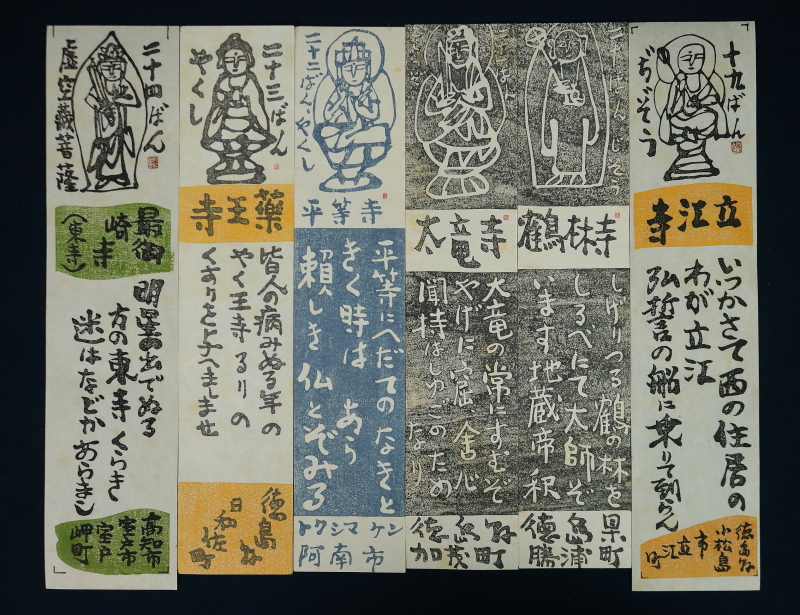 十九ばん
ぢぞう
立江寺
いつかさて西の住居の
わが立江
弘誓の船に乗りて到らん
徳島県
小松島
市立江
町
二十ばんじぞう
鶴林寺
しげりつる鶴の林を
しるべにて大師ぞ
います地蔵帝釈
徳島県
勝浦町
太竜寺
大竜の常にすむぞ
やげに窟舍心
聞持はしゆごのため
なり
徳島県
加茂町
二十二ばん
やくし
平等寺
平等にへだてのなきと
きく時は あら
頼しき仏とぞみる
トクシマケン
阿南市
二十三ばん
やくし
薬王寺
皆人の病みぬる年の
やく王寺るりの
くすりをとへましませ
徳島県
日和佐
町
二十四ばん
虚空蔵菩薩
最御
崎寺
(東寺)
明星の出でぬる
方の東寺くらき
迷はなどかあらまし
高知市
室戸市
室戸
岬町